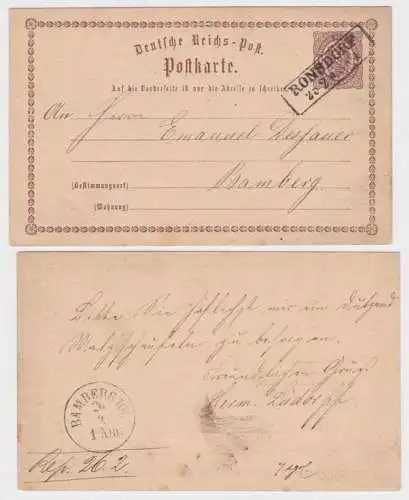 Deutsche Reichs-Post.
Postkarte.
Auf die Vorderseite ist nur die Adresse zu schreiben
RONSDORF
An Herrn Emanuel Dessauer
Bamberg
(Bestimmungsort)
(Wohnung)
Bitte Sie höflichst mir ein Dutzend
Malzschaufeln zu besorgen.
Freundlichen Gruß
BAMBERG
26
2
Rep. 26.2.